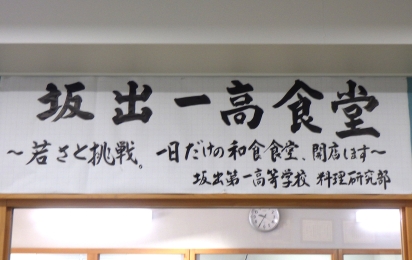 坂出一高食堂
～若さと挑戦。一日だけの和食食堂、開店します～
坂出第一高等学校 料理研究部